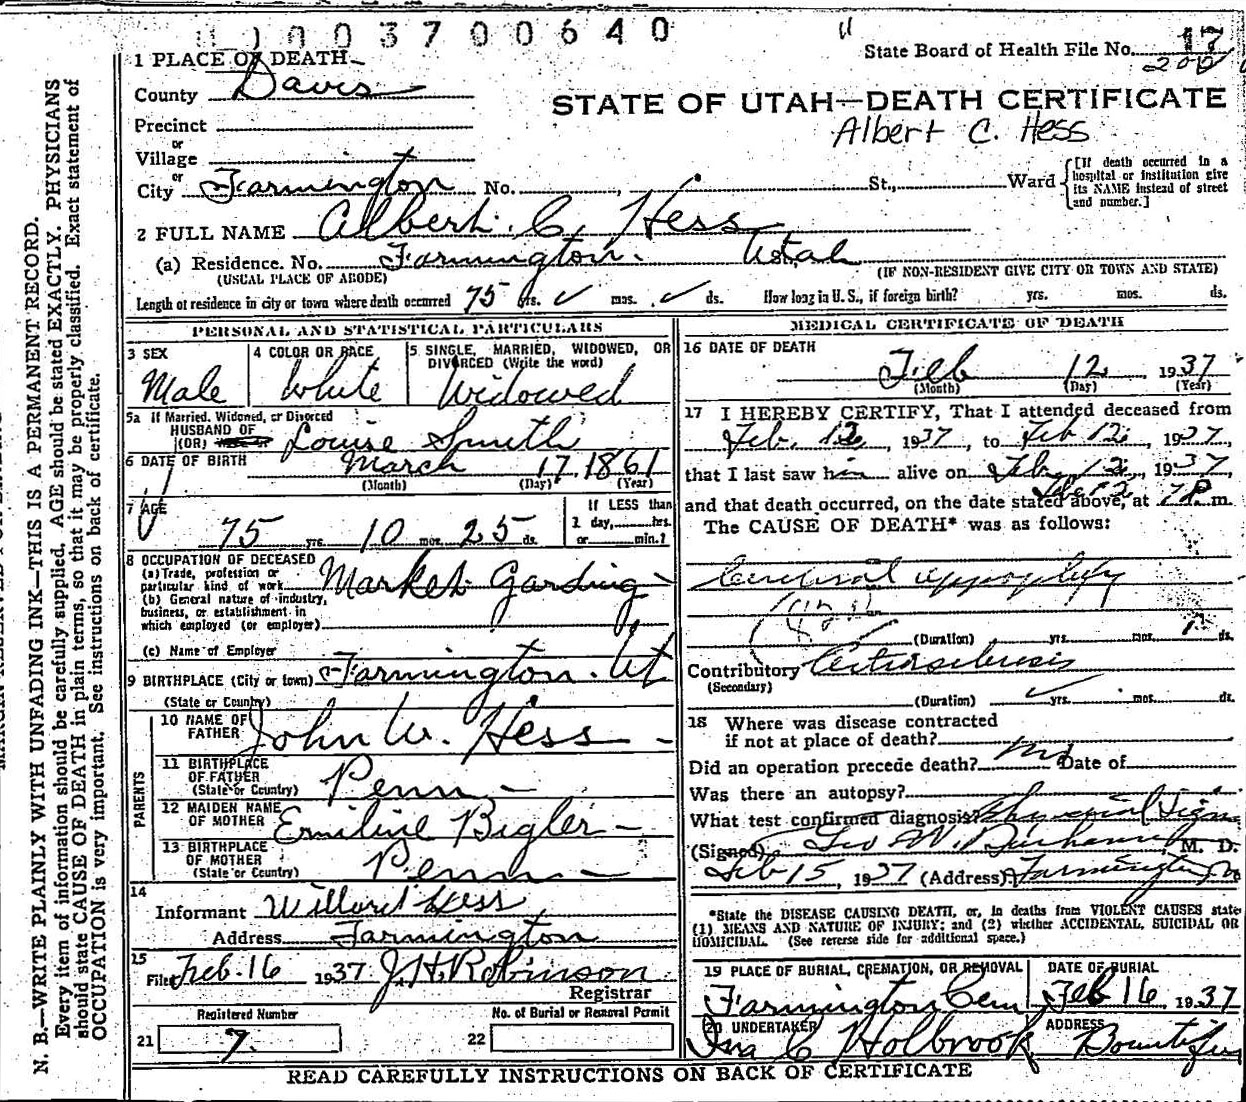 003700640
State Board of Health File No. 17
1 PLACE OF DEATH
County Davis
STATE OF UTAH—DEATH CERTIFICATE
Albert C. Hess
Precinct
or
Village
or
City Farmington No. , St., Ward
[If death occurred in a hospital or institution give its NAME instead of street and number.]
2 FULL NAME Albert. C. Hess
(a) Residence. No. Farmington. Utah
(USUAL PLACE OF ABODE) (IF NON-RESIDENT GIVE CITY OR TOWN AND STATE)
Length of residence in city or town where death occurred 75 yrs. mos. ds. How long in U. S., if foreign birth? yrs. mos. ds.
PERSONAL AND STATISTICAL PARTICULARS
3 SEX
Male
4 COLOR OR RACE
White
5 SINGLE, MARRIED, WIDOWED, OR DIVORCED (Write the word)
Widowed
5a If Married, Widowed, or Divorced
HUSBAND OF
(OR) Louise Smith
6 DATE OF BIRTH March 17 1861
(Month) (Day) (Year)
7 AGE
75 yrs. 10 mos. 25 ds.
If LESS than
1 day, hrs.
or min.?
8 OCCUPATION OF DECEASED
(a) Trade, profession or
particular kind of work Market Garding
(b) General nature of industry,
business, or establishment in
which employed (or employer)
(c) Name of Employer
9 BIRTHPLACE (City or town) Farmington. Ut
(State or Country)
PARENTS
10 NAME OF FATHER John W. Hess
11 BIRTHPLACE OF FATHER (State or Country) Penn
12 MAIDEN NAME OF MOTHER Emiline Bigler
13 BIRTHPLACE OF MOTHER (State or Country) Penn
14
Informant Willard Hess
Address Farmington
15
Filed Feb. 16 1937 J. H. Robinson
Registrar
Registered Number
21 7.
No. of Burial or Removal Permit
22
MEDICAL CERTIFICATE OF DEATH
16 DATE OF DEATH
Feb 12, 1937
(Month) (Day) (Year)
17 I HEREBY CERTIFY, That I attended deceased from
Feb. 12, 1937, to Feb 12, 1937,
that I last saw him alive on Feb. 12, 1937,
and that death occurred, on the date stated above, at 7 P. m.
The CAUSE OF DEATH* was as follows:
Cerebral appoplexy
(Duration) yrs. mos. ds.
Contributory
(Secondary)
(Duration) yrs. mos. ds.
18 Where was disease contracted
if not at place of death?
Did an operation precede death? no Date of
Was there an autopsy?
What test confirmed diagnosis? Physical Signs
(Signed) Geo W. M. D.
Feb 15, 1937 (Address) Farmington
*State the DISEASE CAUSING DEATH, or, in deaths from VIOLENT CAUSES state
(1) MEANS AND NATURE OF INJURY; and (2) whether ACCIDENTAL, SUICIDAL OR
HOMICIDAL. (See reverse side for additional space.)
19 PLACE OF BURIAL, CREMATION, OR REMOVAL
Farmington Cem
DATE OF BURIAL
Feb 16, 1937
20 UNDERTAKER
Ira C Holbrook
ADDRESS
Bountiful
READ CAREFULLY INSTRUCTIONS ON BACK OF CERTIFICATE
N. B.—WRITE PLAINLY WITH UNFADING INK—THIS IS A PERMANENT RECORD.
Every item of information should be carefully supplied. AGE should be stated EXACTLY. PHYSICIANS
should state CAUSE OF DEATH in plain terms, so that it may be properly classified. Exact statement of
OCCUPATION is very important. See instructions on back of certificate.